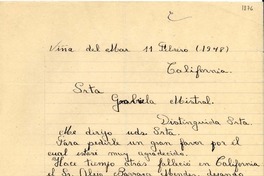 1876
Viña del Mar 11 Febrero (1948)
California.
Srta
Gabriela Mistral.
Distinguida Srta.
Me dirijo uds. Srta.
Para pedirle un gran favor por el
cual estaré muy agradecida.
Hace tiempo atras fallecio en California
el Sr. Barrara Mendes, dejando